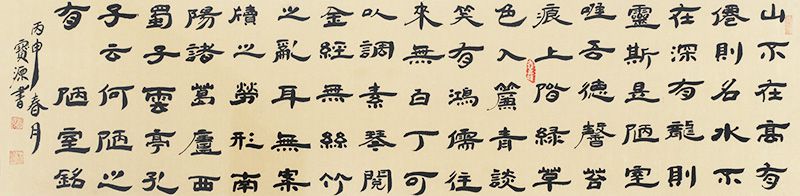 山不在高有
僊則名水不
在深有龍則
靈斯昰陋室
唯吾德馨苔
痕上階緑草
色入簾青談
笑有鴻儒往
來無白丁可
以調素琴閱
金經無絲竹
之亂耳無案
牘之勞形南
陽諸葛廬西
蜀子雲亭孔
子云何陋之
有 陋室銘
丙申春月
寶源書